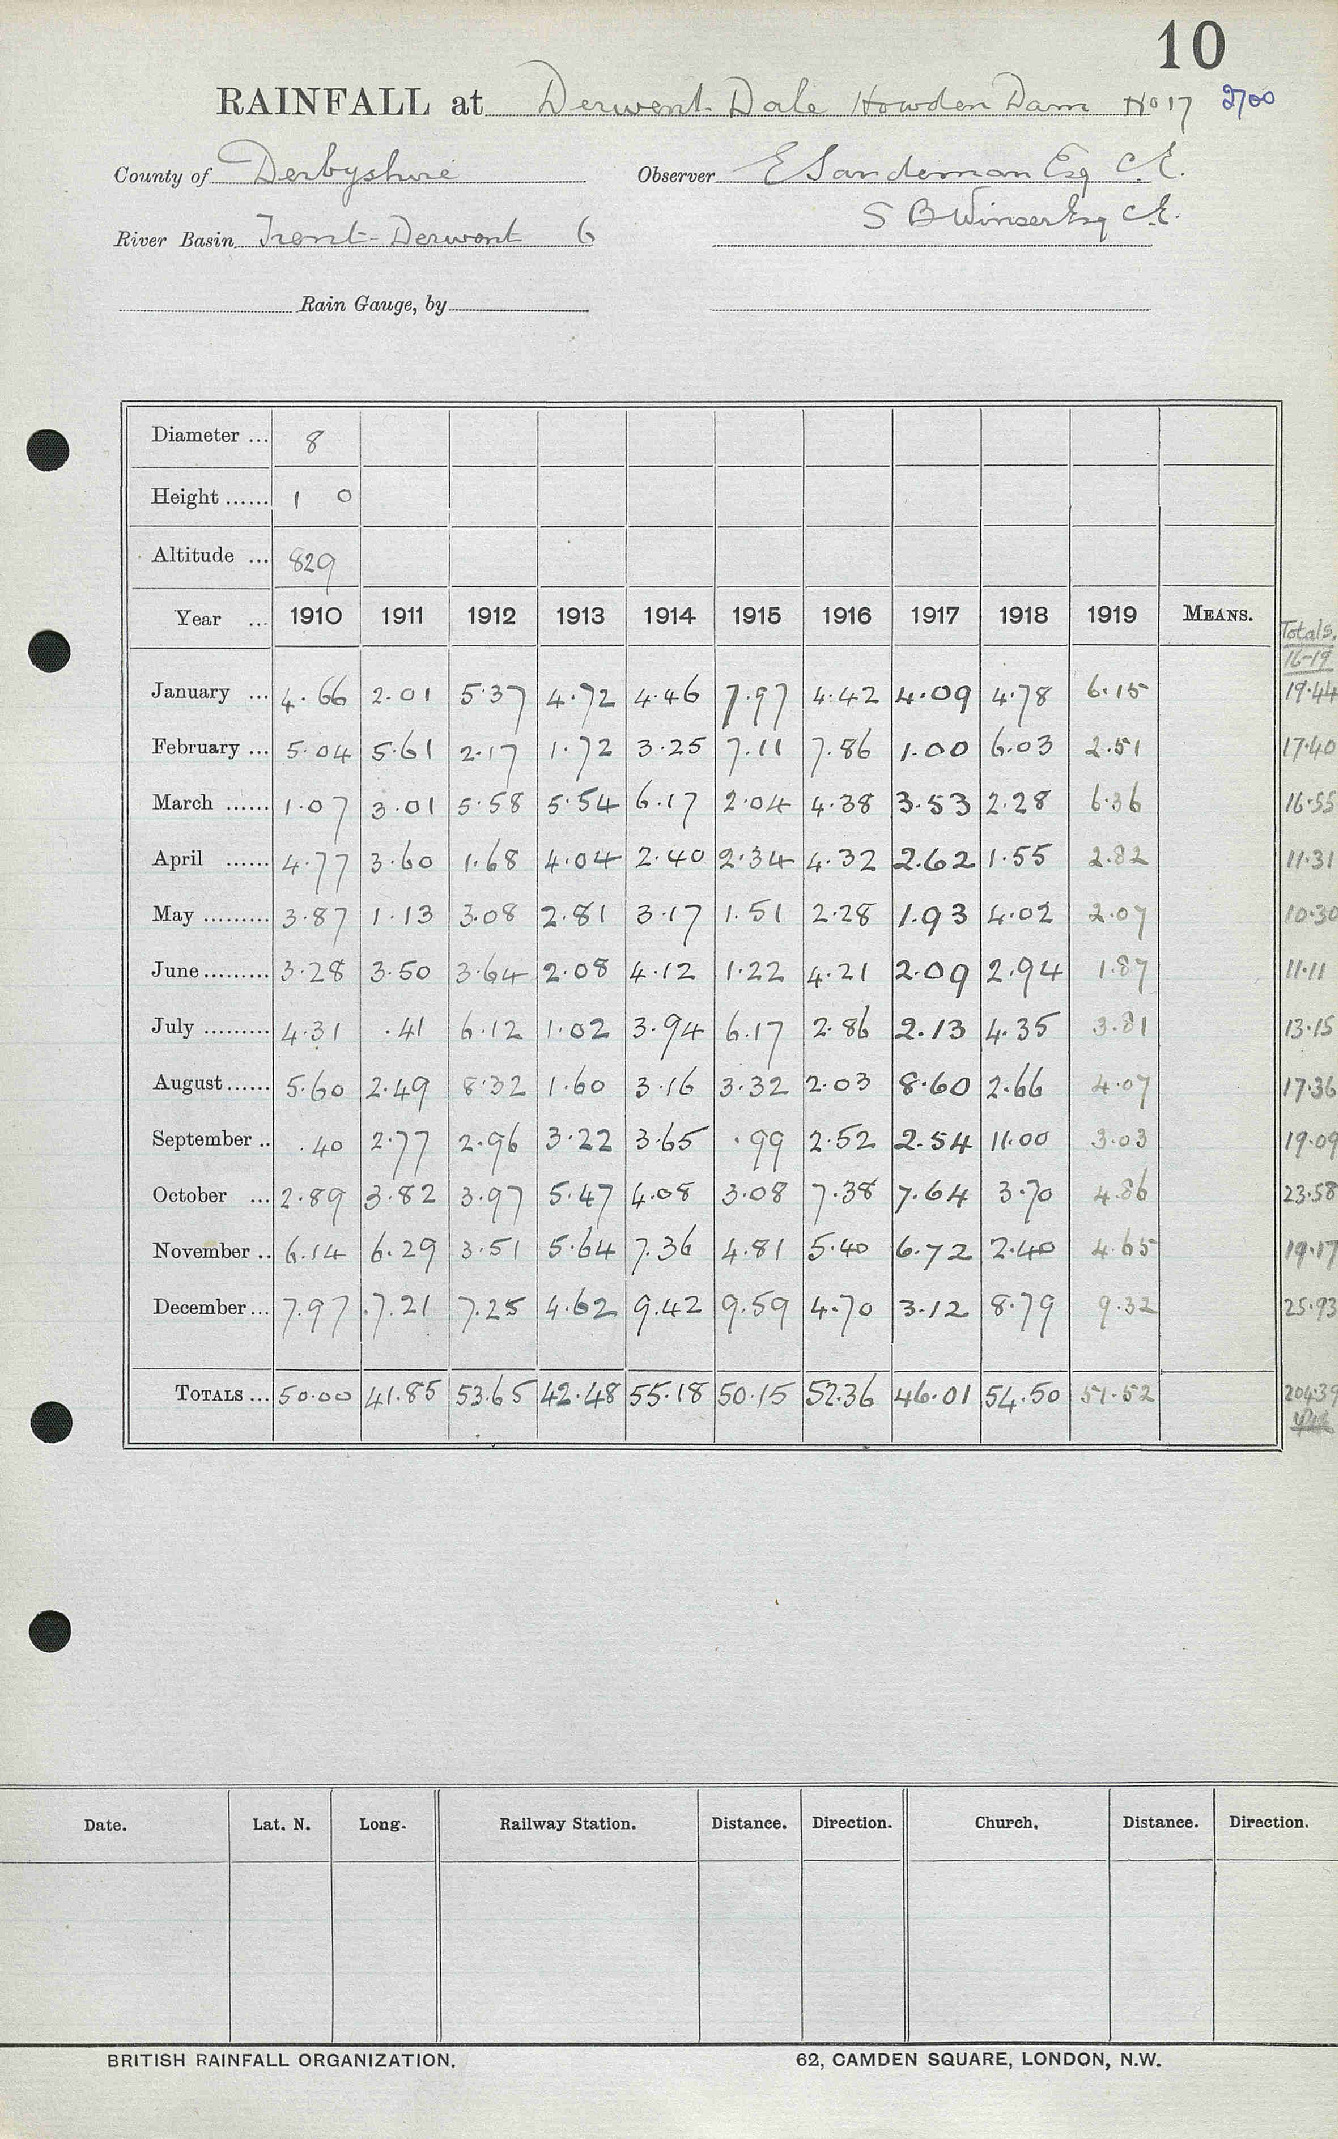 10
RAINFALL at Derwent Dale Howden Dam No 17 2700
County of Derbyshire Observer E Sandeman Esq C.E.
S B Winser Esq C.E.
River Basin Trent-Derwent 6
Rain Gauge, by
Diameter ... 8
Height ...... 1 0
Altitude ... 829
Year ... 1910 1911 1912 1913 1914 1915 1916 1917 1918 1919 MEANS. Totals.
16-19
January ... 4.66 2.01 5.37 4.72 4.46 7.97 4.42 4.09 4.78 6.15 19.44
February ... 5.04 5.61 2.17 1.72 3.25 7.11 7.86 1.00 6.03 2.51 17.40
March ...... 1.07 3.01 5.58 5.54 6.17 2.04 4.38 3.53 2.28 6.36 16.55
April ...... 4.77 3.60 1.68 4.04 2.40 2.34 4.32 2.62 1.55 2.82 11.31
May ......... 3.87 1.13 3.08 2.81 3.17 1.51 2.28 1.93 4.02 2.07 10.30
June ......... 3.28 3.50 3.64 2.08 4.12 1.22 4.21 2.09 2.94 1.87 11.11
July ......... 4.31 .41 6.12 1.02 3.94 6.17 2.86 2.13 4.35 3.81 13.15
August ...... 5.60 2.49 8.32 1.60 3.16 3.32 2.03 8.60 2.66 4.07 17.36
September .. .40 2.77 2.96 3.22 3.65 .99 2.52 2.54 11.00 3.03 19.09
October ... 2.89 3.82 3.97 5.47 4.08 3.08 7.38 7.64 3.70 4.86 23.58
November .. 6.14 6.29 3.51 5.64 7.36 4.81 5.40 6.72 2.40 4.65 19.17
December ... 7.97 7.21 7.25 4.62 9.42 9.59 4.70 3.12 8.79 9.32 25.93
TOTALS ... 50.00 41.85 53.65 42.48 55.18 50.15 52.36 46.01 54.50 51.52 204.39
Date. Lat. N. Long. Railway Station. Distance. Direction. Church. Distance. Direction.
BRITISH RAINFALL ORGANIZATION. 62, CAMDEN SQUARE, LONDON, N.W.